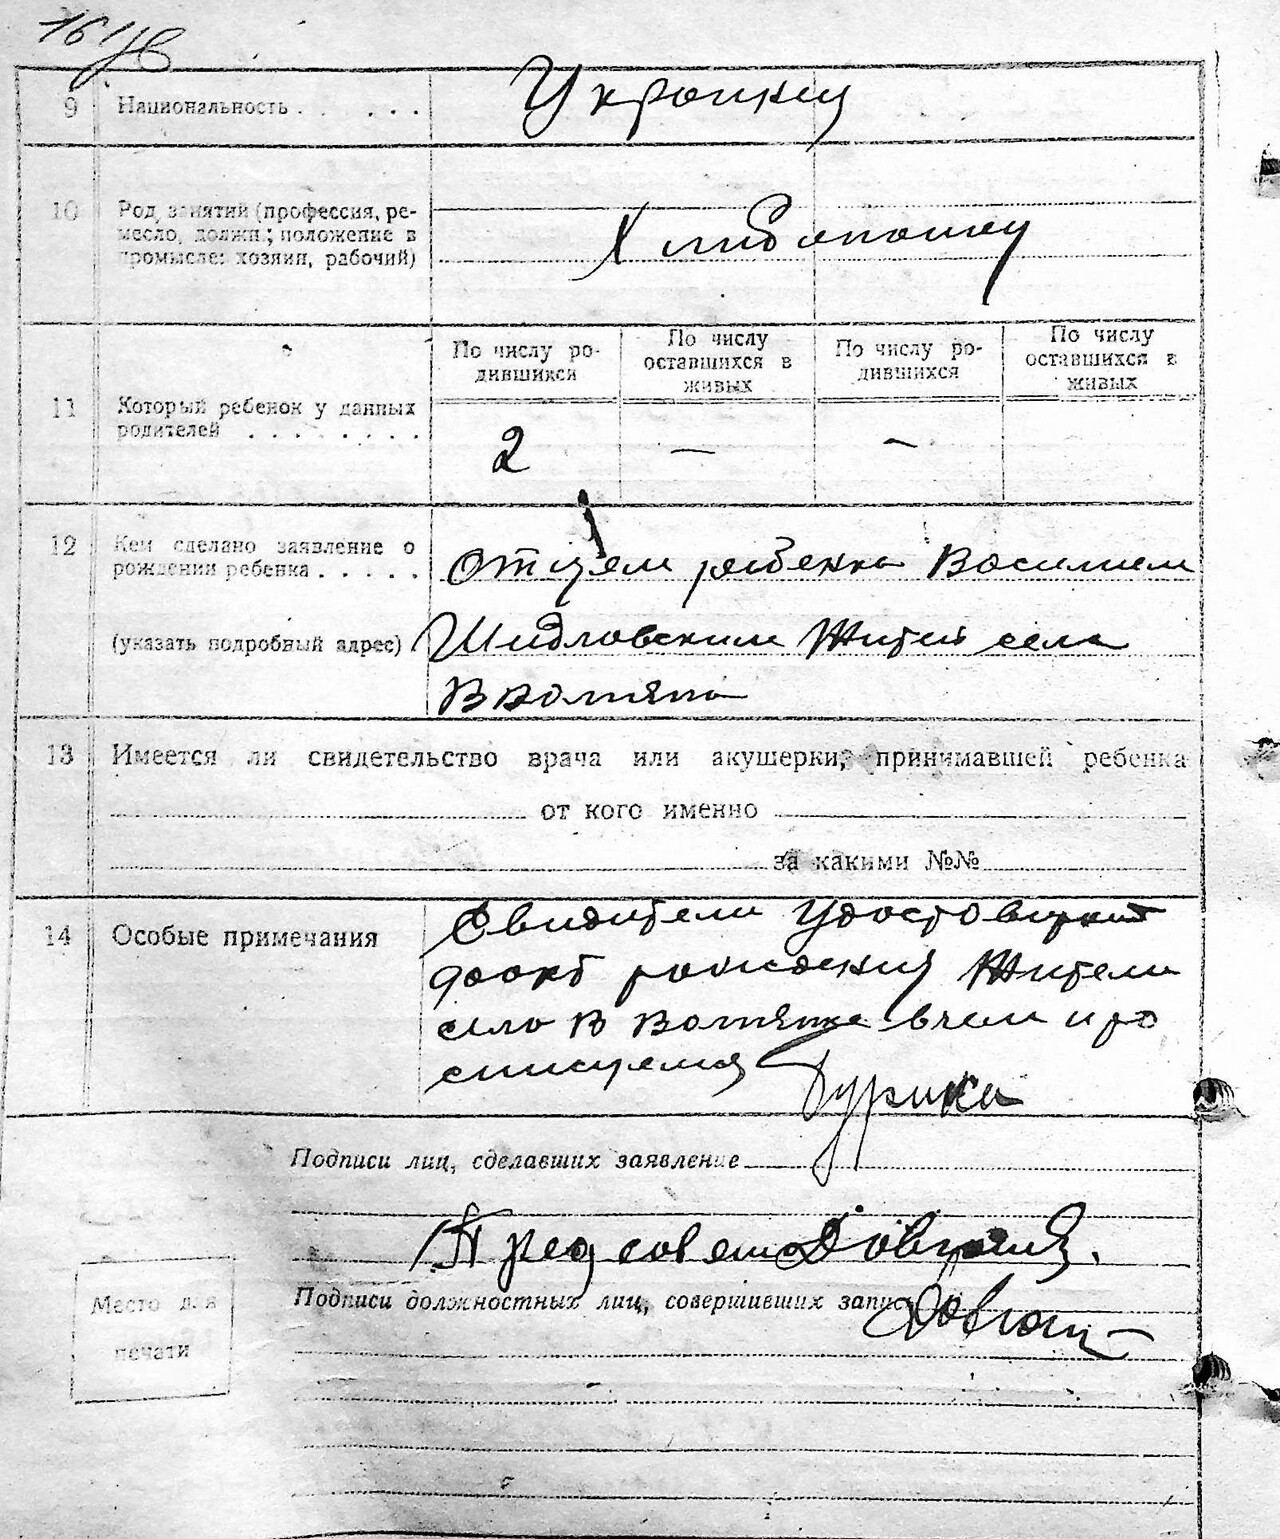 161
9 Национальность . . . . . Украинцы
10 Род занятий (профессия, ре-
месло, должн.; положение в
промысле: хозяин, рабочий)
Хлибопашцы
По числу ро-
дившихся
По числу
оставшихся в
живых
По числу ро-
дившихся
По числу
оставшихся в
живых
11 Который ребенок у данных
родителей . . . . . . . .
2 — —
12 Кем сделано заявление о
рождении ребенка . . . . .
(указать подробный адрес)
Отцем ребенка Василием
Шидловским Жител села
13 Имеется ли свидетельство врача или акушерки, принимавшей ребенка
от кого именно
за какими №№
14 Особые примечания
Свидители
факт рождения Жители
село В
Подписи лиц, сделавших заявление
Пред совета
Подписи должностных лиц, совершивших запись
Место для
печати